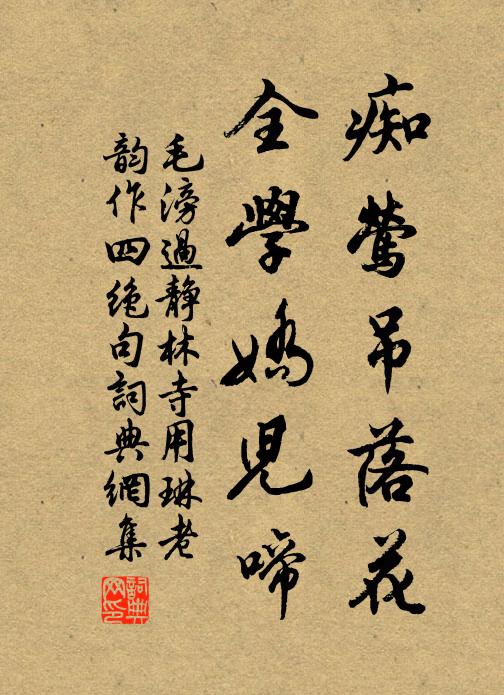 痴鶯吊落花
全學嬌兒啼
毛滂過靜林寺用琳老
韵作四絶句詞典網集
詞典网印